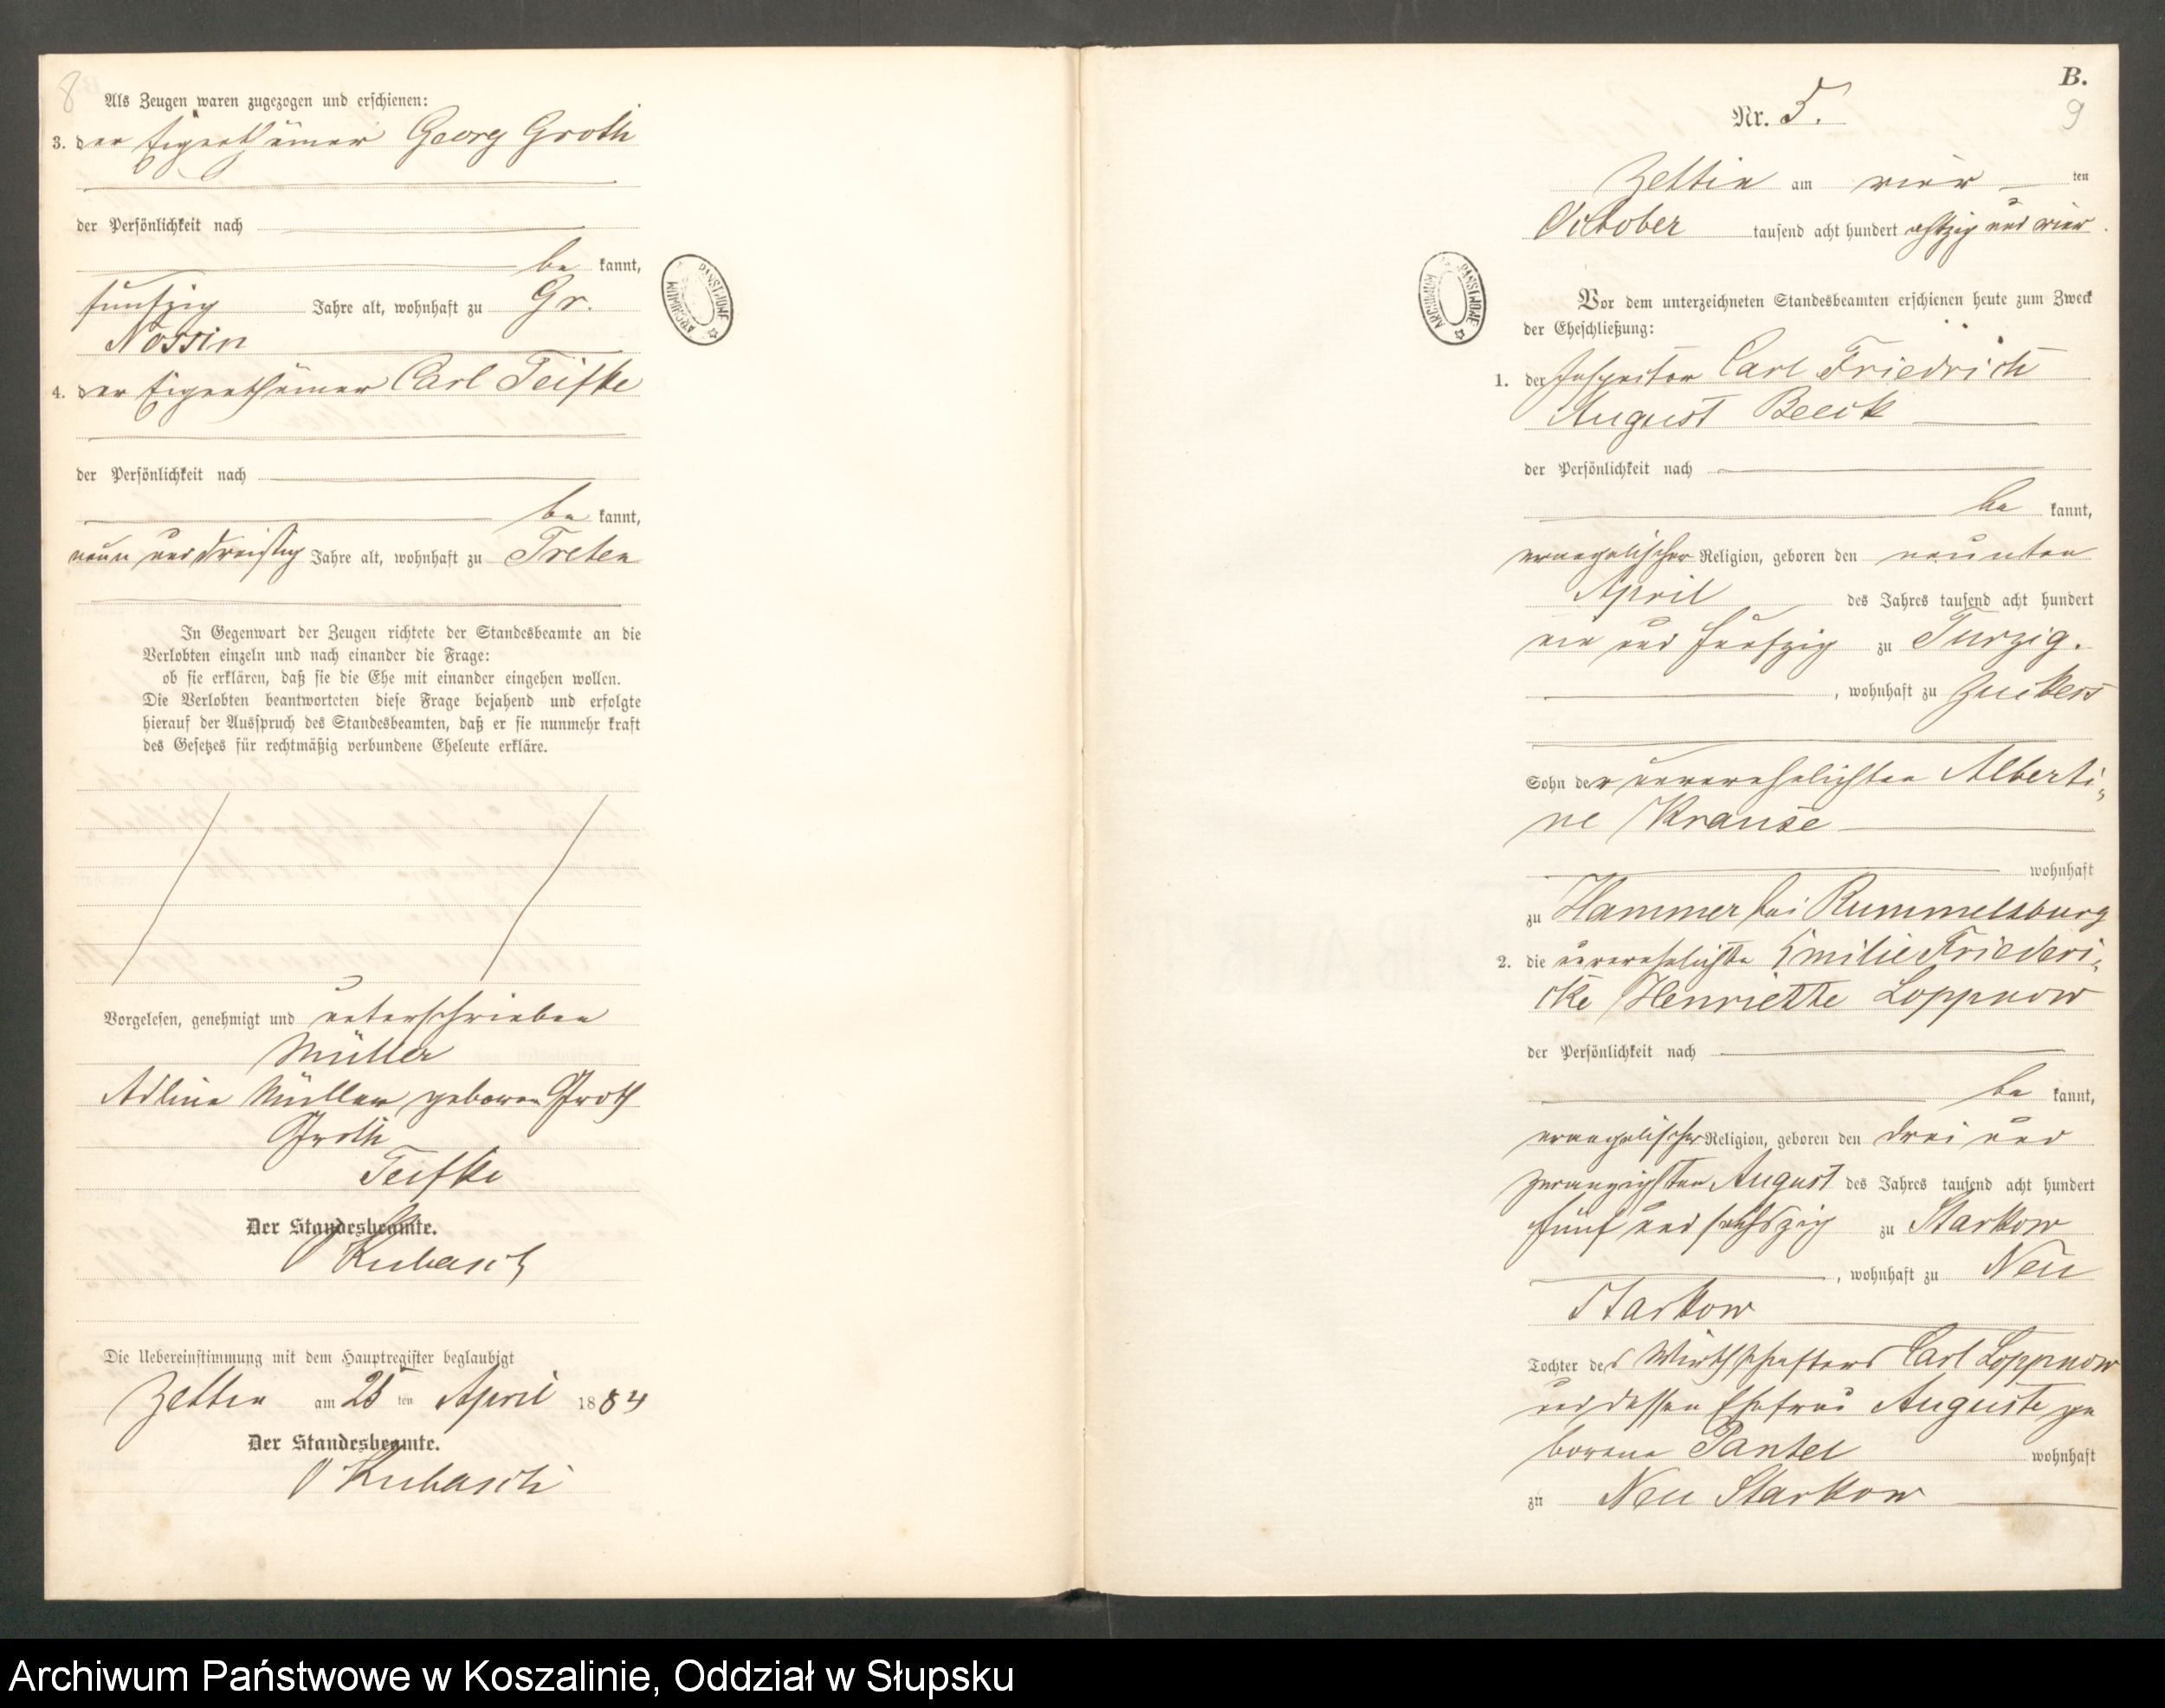 8
Als Zeugen waren zugezogen und erschienen:
3. der Eigenthümer Georg Groth
der Persönlichkeit nach
be kannt,
funfzig Jahre alt, wohnhaft zu Gr.
Nossin
4. der Eigenthümer Carl Teifke
der Persönlichkeit nach
be kannt,
neun und dreißig Jahre alt, wohnhaft zu Treten
In Gegenwart der Zeugen richtete der Standesbeamte an die
Verlobten einzeln und nach einander die Frage:
ob sie erklären, daß sie die Ehe mit einander eingehen wollen.
Die Verlobten beantworteten diese Frage bejahend und erfolgte
hierauf der Ausspruch des Standesbeamten, daß er sie nunmehr kraft
des Gesetzes für rechtmäßig verbundene Eheleute erkläre.
Vorgelesen, genehmigt und unterschrieben
Müller
Adline Müller geboren Groth
Groth
Teifke
Der Standesbeamte.
Kubasch
Die Uebereinstimmung mit dem Hauptregister beglaubigt
Zettin am 25 ten April 1884
Der Standesbeamte.
Kubasch
B.
9
Nr. 5.
Zettin am vier ten
October tausend acht hundert achtzig und vier.
Vor dem unterzeichneten Standesbeamten erschienen heute zum Zweck
der Eheschließung:
1. der Inspector Carl Friedrich
August Beeck
der Persönlichkeit nach
be kannt,
evangelischer Religion, geboren den neunten
April des Jahres tausend acht hundert
ein und funfzig zu Turzig.
, wohnhaft zu Zuckers
Sohn der unverehelichten Alberti-
ne Krause
wohnhaft
zu Hammer bei Rummelsburg
2. die unverehelichte Emilie Friederi-
cke Henriette Loppnow
der Persönlichkeit nach
be kannt,
evangelischer Religion, geboren den drei und
zwanzigsten August des Jahres tausend acht hundert
fünf und sechszig zu Starkow
, wohnhaft zu Neu
Starkow
Tochter des Wirthschafters Carl Loppnow
und dessen Ehefrau Auguste ge
borene Pantel wohnhaft
zu Neu Starkow
ARCHIWUM PAŃSTWOWE
ARCHIWUM PAŃSTWOWE
Archiwum Państwowe w Koszalinie, Oddział w Słupsku